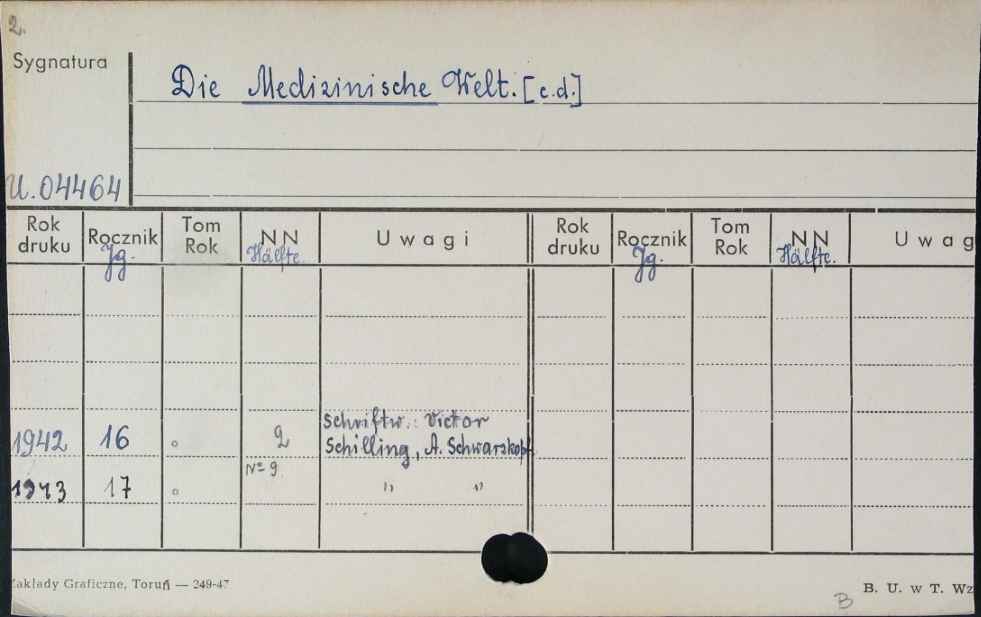 2.
Sygnatura
Die Medizinische Welt. [c.d.]
U.04464
Rok druku Rocznik Tom Rok NN Uwagi Rok druku Rocznik Tom Rok NN Uwag
Jg. Hälfte. Jg. Hälfte.
Schriftw.: Victor
1942 16 2 Schilling, A. Schwarzkopf
Nº 9.
1943 17 " "
Zakłady Graficzne, Toruń — 249-47
B. U. w T. Wz
B